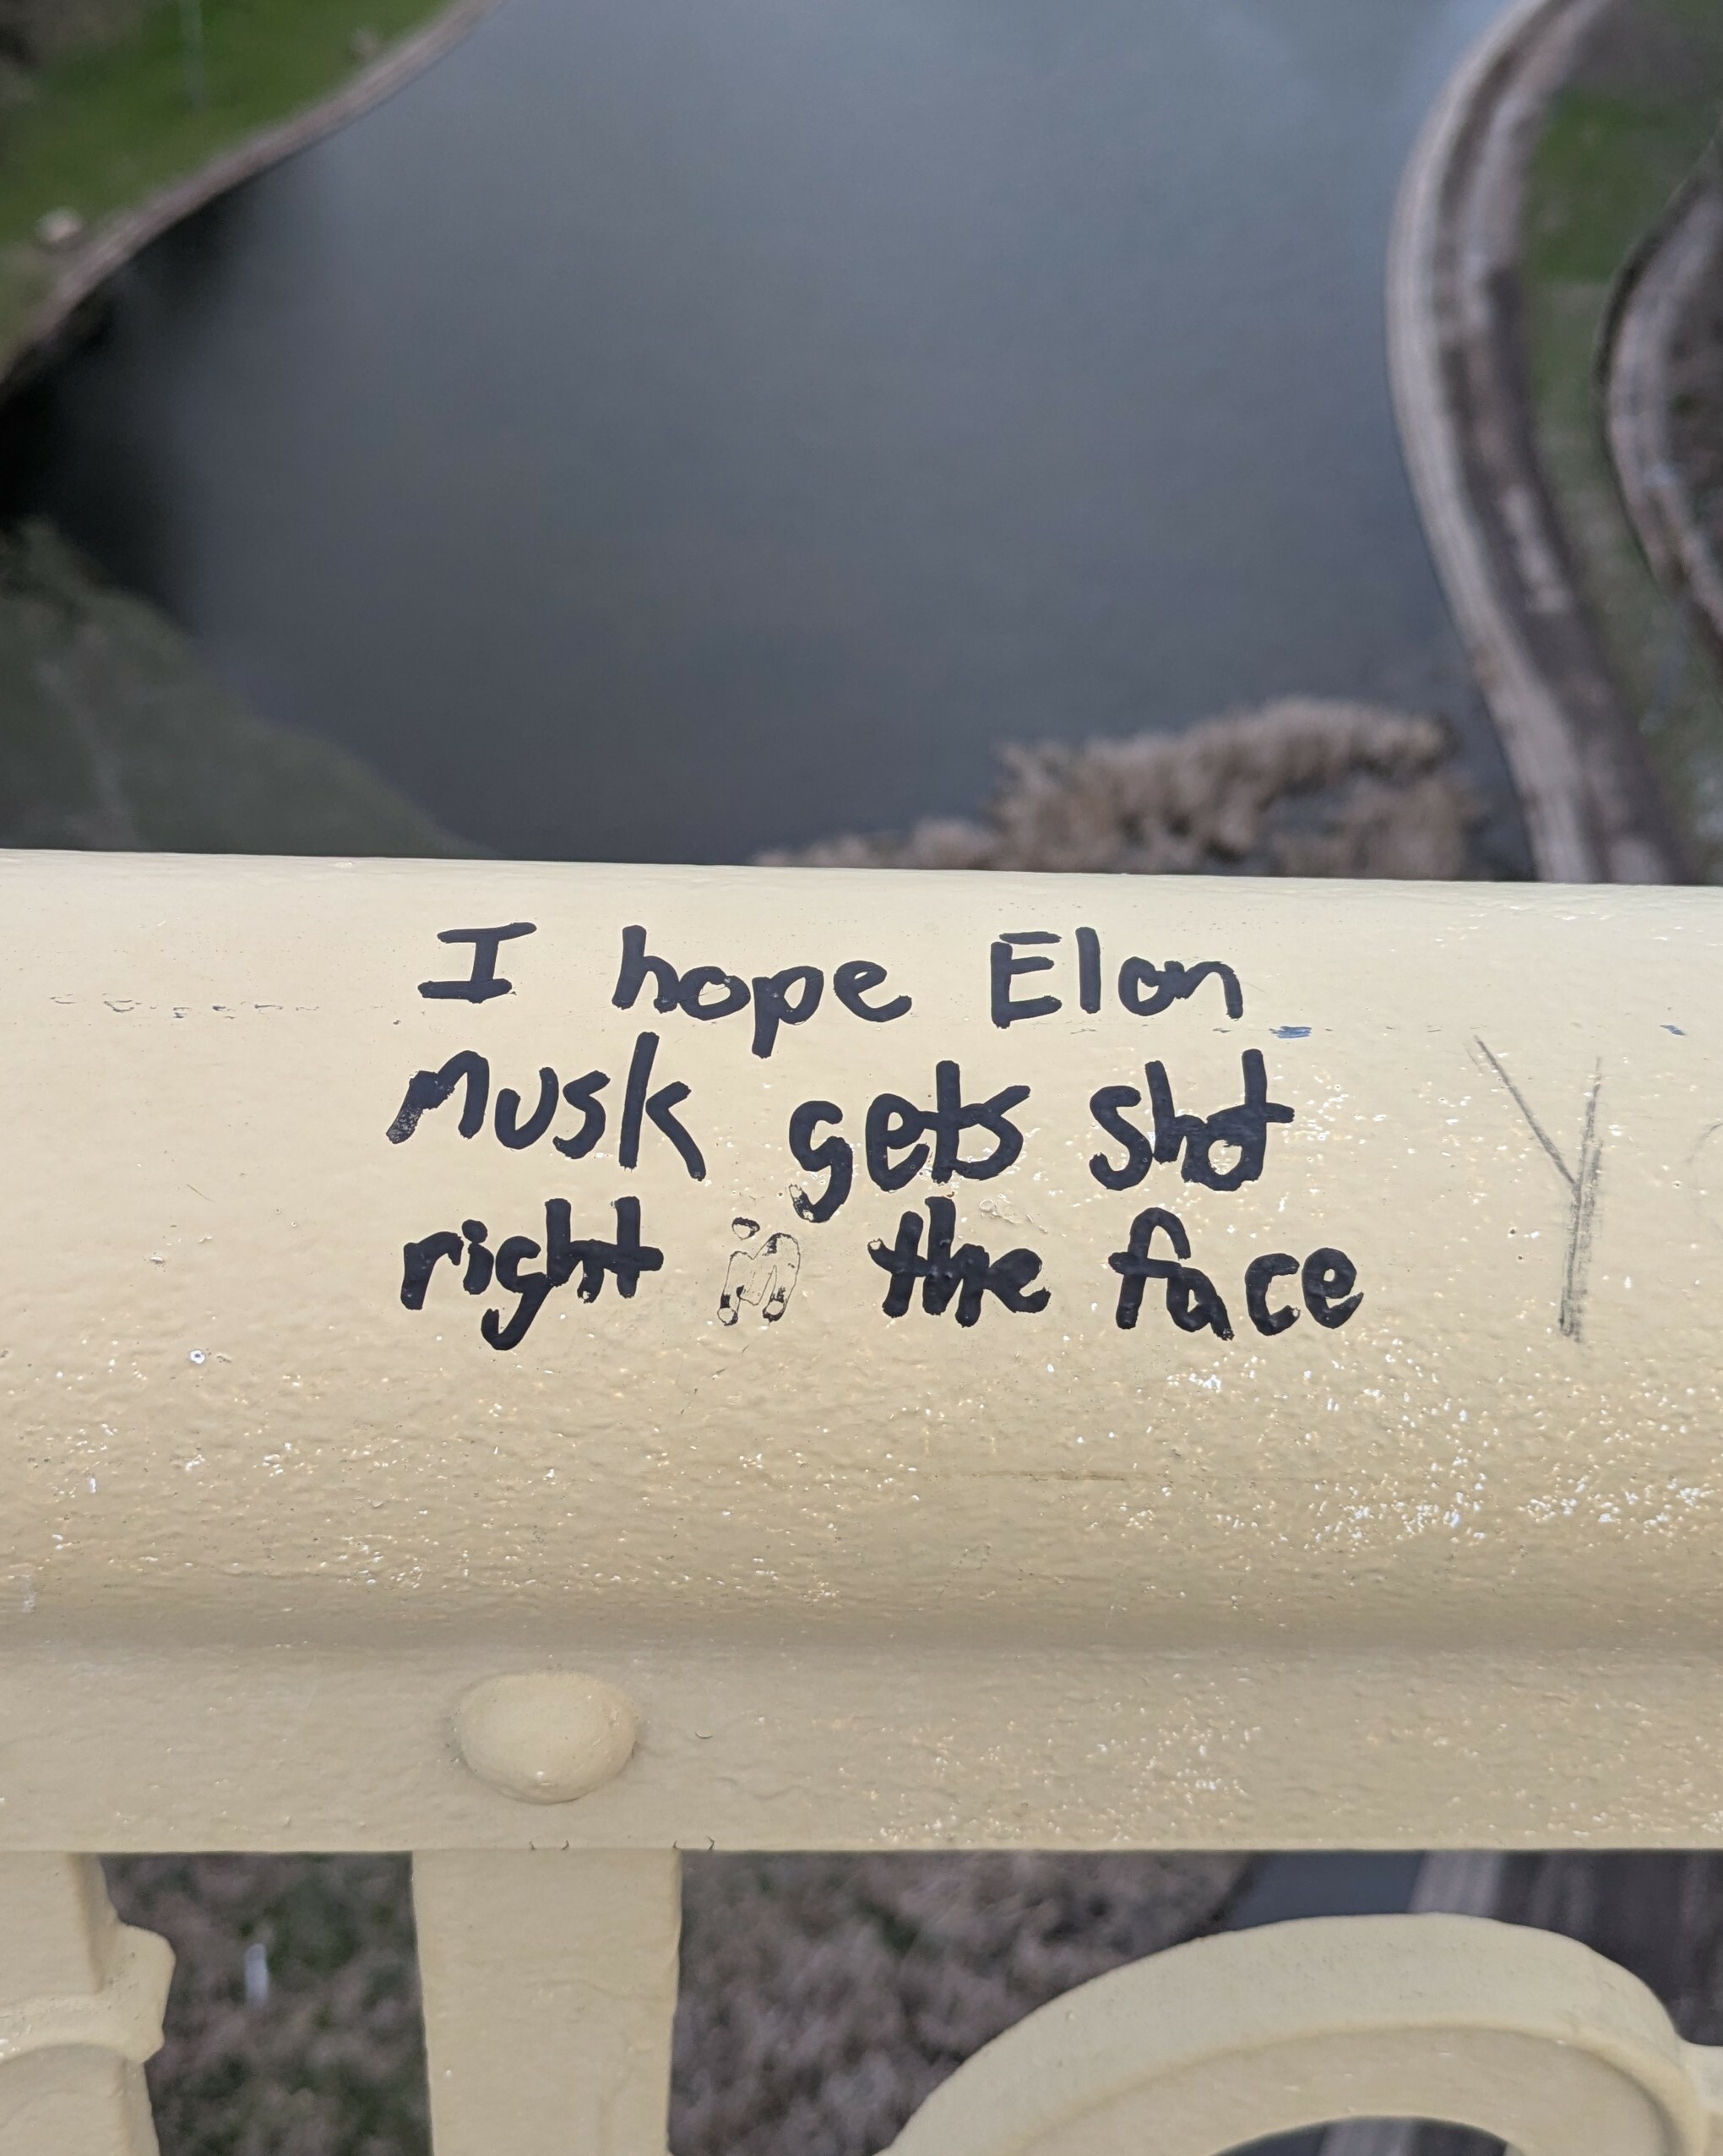 I hope Elon
Musk gets shot
right in the face
Y